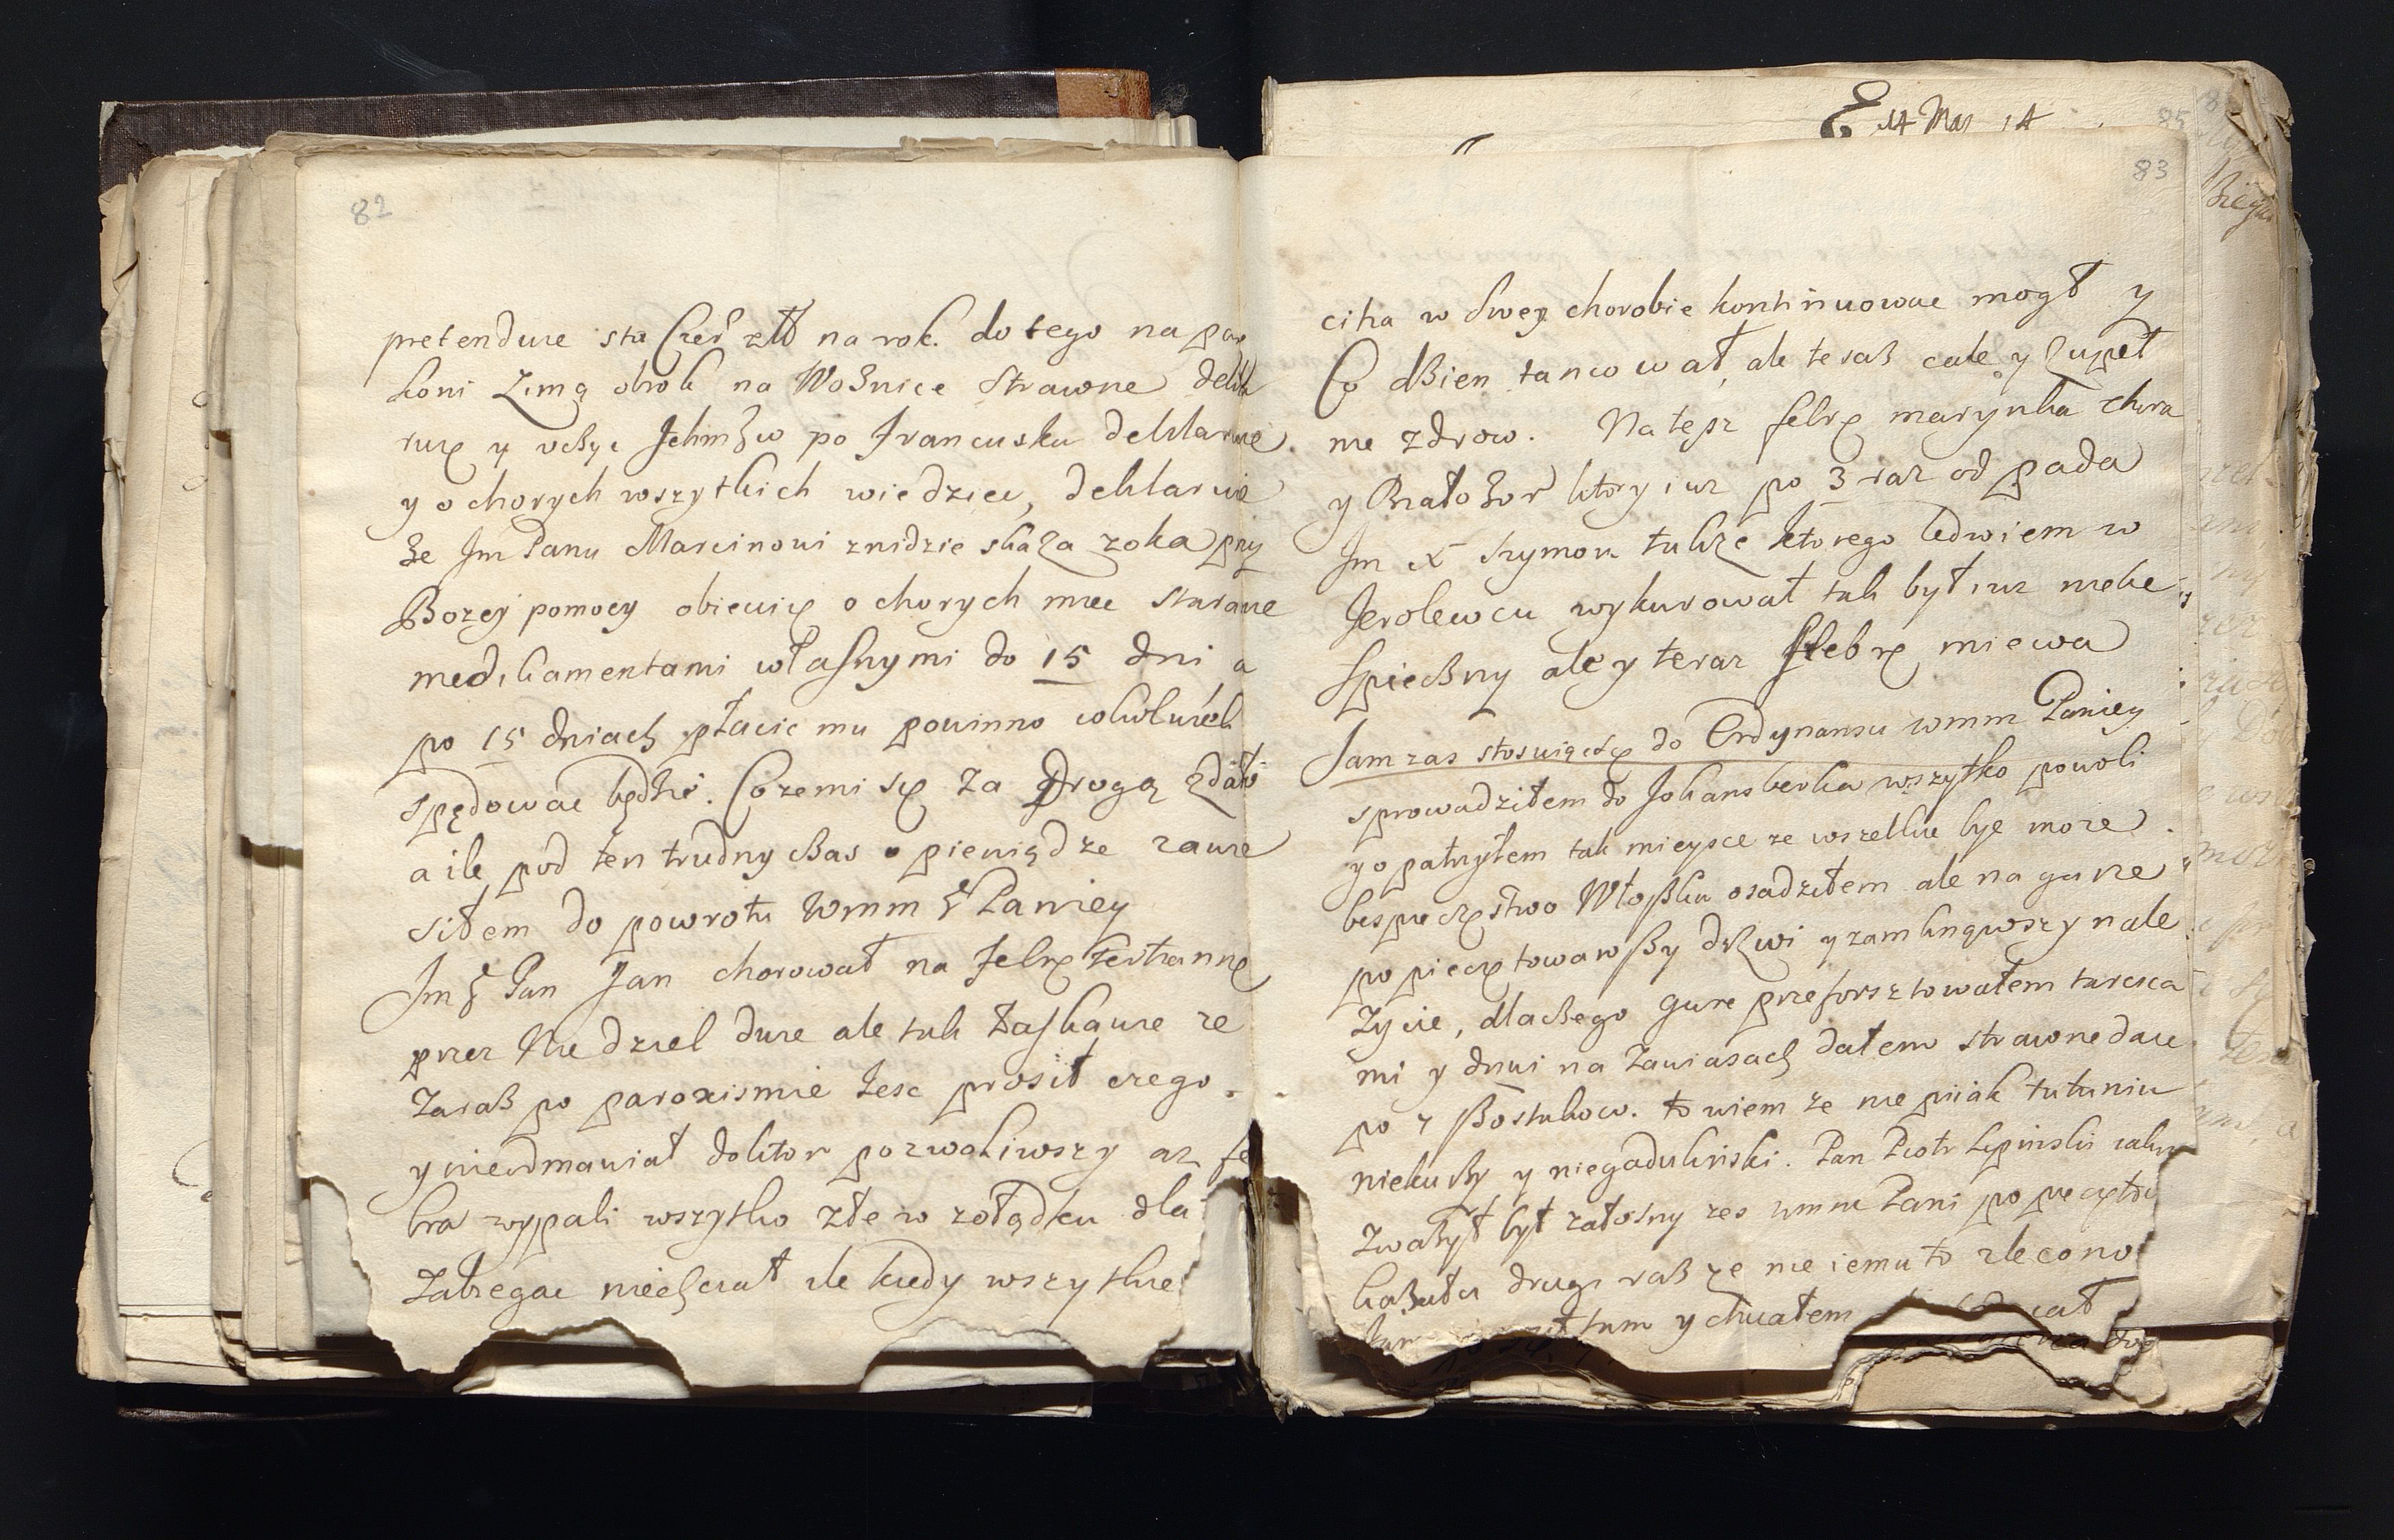 82
pretenduie sta Czer zło na rok. do tego na par
koni Zimą obrok na Woźnice Strawne dekla
ruię y uczyc Jchmśćiow po francusku deklaruie.
y o chorych wszytkich wiedziec, deklaruie
że Jm Panu Marcinowi znidzie skaza z oka przy
Bozey pomocy obiecuię o chorych miec staranie
medikamentami własnymi do 15 dni, a
po 15 dniach płacic mu powinno cokolwiek
spędowac będzie. Co zemi się za drogą zdało
a ile pod ten trudny czas o pieniądze zawie
siłem do powrotu Wmm Paniey
Jm Pan Jan chorował na febrę tertiannę
przez Niedziel dwie ale tak łaskawie ze
Zaraz po paroxismie Jesc prosił czego
y nieodmawiał doktor pozwoliwszy az fe
bra wypali wszytko złe w zołądku dla
Zabiegac niechciał ale kiedy wszytkie
E 14 Mar 14
85
83
cika w swey chorobie kontinuowac mogł y
Co dzien tancował, ale teraz cale y zupeł
nie zdrow. Na tęsz febrę marynka chora
y Białozor ktory iuz po 3 raz odpada
Jm X Szymon takze ktorego ledwiem w
Krolewcu wykurował tak był iuz niebe
spieczny ale y teraz febrę miewa
Jam zas stosuiącsię do Ordynansu wmm Paniey
sprowadziłem do Johansberka wszytko powoli
y opatrzyłem tak mieysce ze wszelkie byc moze
bespieczęstwo Włoszku osadziłem ale na gurze
popieczętowawszy drzwi y zamknąwszy nale
życie, dlaczego gure przeforsztowałem tarcica
mi y drzwi na zawiasach dałem strawne daie
po 7 szostakow. to wiem ze nie piiak tutuniu
niekurzy y niegadulinski. Pan Piotr Lipinski
zwazył był załosny zes wmm Pani popieczęto
kazała drugi raz ze nie iemu to zlecono
tam y chciałem